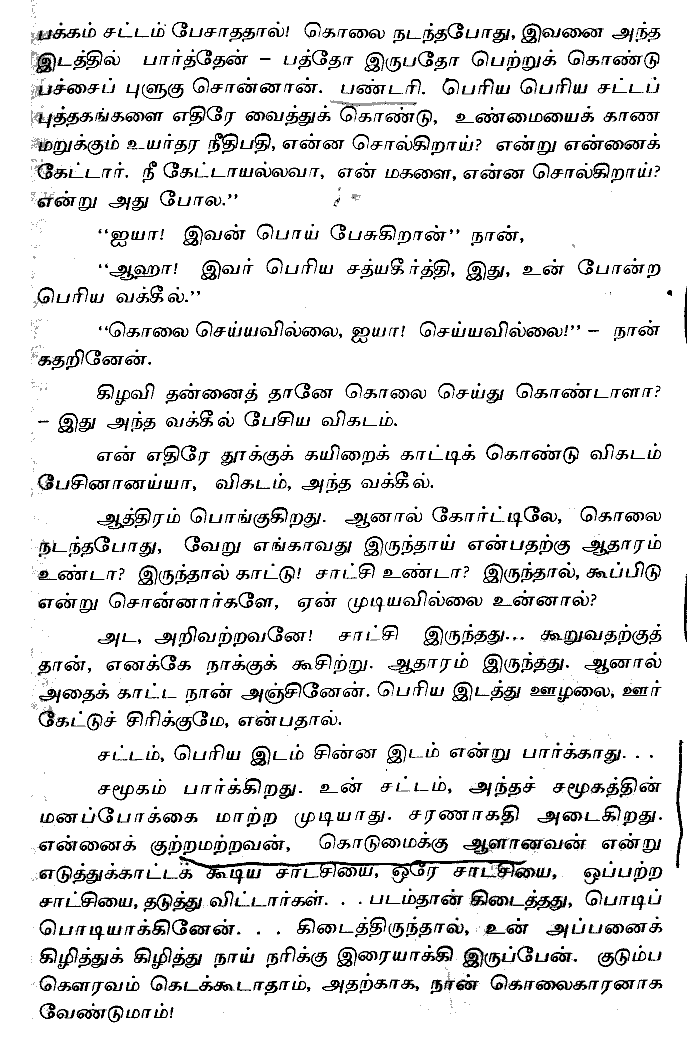 பக்கம் சட்டம் பேசாததால்! கொலை நடந்தபோது, இவனை அந்த
இடத்தில் பார்த்தேன் – பத்தோ இருபதோ பெற்றுக் கொண்டு
பச்சைப் புளுகு சொன்னான். பண்டாரி. பெரிய பெரிய சட்டப்
புத்தகங்களை எதிரே வைத்துக் கொண்டு, உண்மையைக் காண
மறுக்கும் உயர்தர நீதிபதி, என்ன சொல்கிறாய்? என்று என்னைக்
கேட்டார். நீ கேட்டாயல்லவா, என் மகளை, என்ன சொல்கிறாய்?
என்று அது போல."
"ஐயா! இவன் பொய் பேசுகிறான்" நான்,
"ஆஹா! இவர் பெரிய சத்யகீர்த்தி, இது, உன் போன்ற
பெரிய வக்கீல்."
"கொலை செய்யவில்லை, ஐயா! செய்யவில்லை!" – நான்
கதறினேன்.
கிழவி தன்னைத் தானே கொலை செய்து கொண்டாளா?
– இது அந்த வக்கீல் பேசிய விகடம்.
என் எதிரே தூக்குக் கயிறைக் காட்டிக் கொண்டு விகடம்
பேசினானய்யா, விகடம், அந்த வக்கீல்.
ஆத்திரம் பொங்குகிறது. ஆனால் கோர்ட்டிலே, கொலை
நடந்தபோது, வேறு எங்காவது இருந்தாய் என்பதற்கு ஆதாரம்
உண்டா? இருந்தால் காட்டு! சாட்சி உண்டா? இருந்தால், கூப்பிடு
என்று சொன்னார்களே, ஏன் முடியவில்லை உன்னால்?
அட, அறிவற்றவனே! சாட்சி இருந்தது... கூறுவதற்குத்
தான், எனக்கே நாக்குக் கூசிற்று. ஆதாரம் இருந்தது. ஆனால்
அதைக் காட்ட நான் அஞ்சினேன். பெரிய இடத்து ஊழலை, ஊர்
கேட்டுச் சிரிக்குமே, என்பதால்.
சட்டம், பெரிய இடம் சின்ன இடம் என்று பார்க்காது. . .
சமூகம் பார்க்கிறது. உன் சட்டம், அந்தச் சமூகத்தின்
மனப்போக்கை மாற்ற முடியாது. சரணாகதி அடைகிறது.
என்னைக் குற்றமற்றவன், கொடுமைக்கு ஆளானவன் என்று
எடுத்துக்காட்டக் கூடிய சாட்சியை, ஒரே சாட்சியை, ஒப்பற்ற
சாட்சியை, தடுத்து விட்டார்கள். . . படம்தான் கிடைத்தது, பொடிப்
பொடியாக்கினேன். . . கிடைத்திருந்தால், உன் அப்பனைக்
கிழித்துக் கிழித்து நாய் நரிக்கு இரையாக்கி இருப்பேன். குடும்ப
கௌரவம் கெடக்கூடாதாம், அதற்காக, நான் கொலைகாரனாக
வேண்டுமாம்!